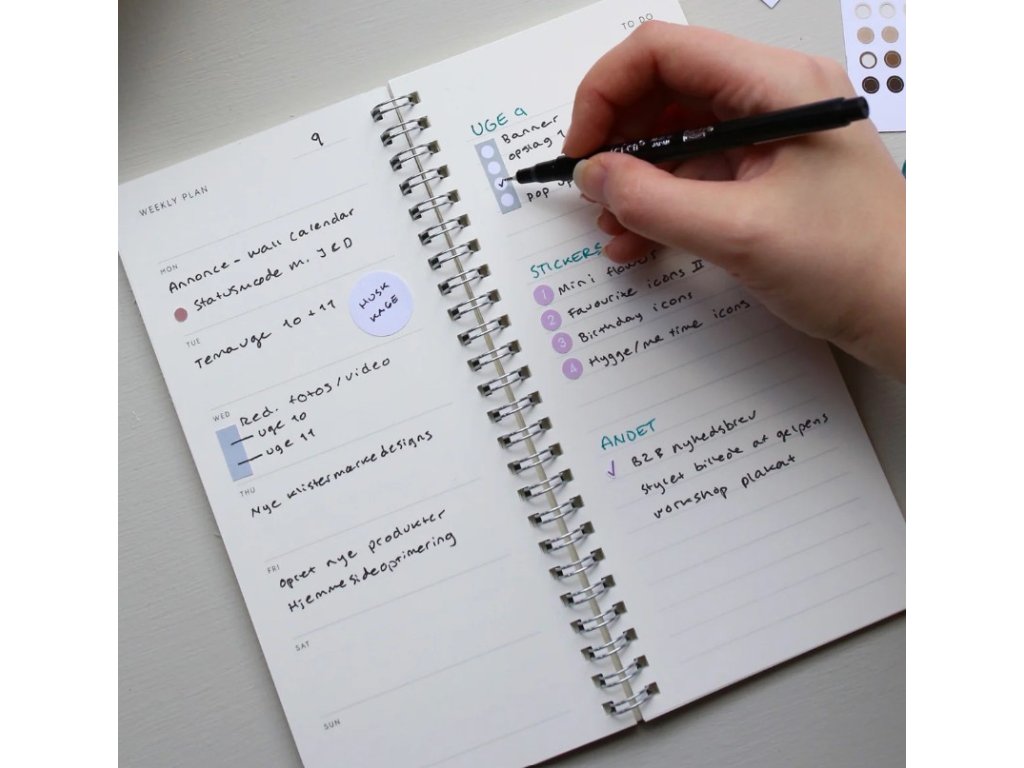 9
WEEKLY PLAN
MON
Annonce - Wall Calendar
Statusmøde m. J & D
TUE
Temauge 10 + 11
HUSK
KAGE
WED
Red. fotos/video
uge 10
uge 11
THU
Nye klistermærkedesigns
FRI
Opret nye produkter
Hjemmesideoptimering
SAT
SUN
TO DO
UGE 9
Banner
opslag
pop up
STICKERS
1 Mini flower
2 Favourite icons II
3 Birthday icons
4 Hygge/me time icons
ANDET
B2B nyhedsbrev
Stylet billede af gelpens
workshop plakat